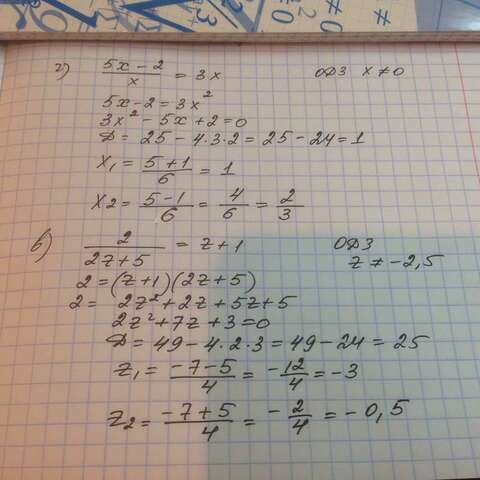 г) (5x - 2)/x = 3x ОДЗ x ≠ 0
5x - 2 = 3x²
3x² - 5x + 2 = 0
D = 25 - 4·3·2 = 25 - 24 = 1
x₁ = (5 + 1)/6 = 1
x₂ = (5 - 1)/6 = 4/6 = 2/3
в) 2/(2z + 5) = z + 1 ОДЗ
z ≠ -2,5
2 = (z + 1)(2z + 5)
2 = 2z² + 2z + 5z + 5
2z² + 7z + 3 = 0
D = 49 - 4·2·3 = 49 - 24 = 25
z₁ = (-7 - 5)/4 = -12/4 = -3
z₂ = (-7 + 5)/4 = -2/4 = -0,5